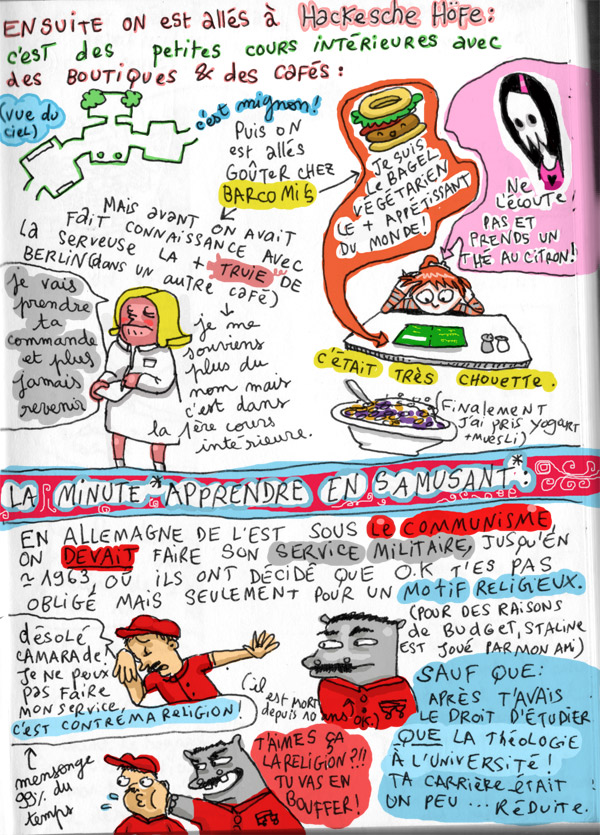 ENSUITE ON EST ALLÉS À Hackesche Höfe:
c'EST DES PETITES COURS INTÉRIEURES AVEC
des BOUTIQUES & des CAFÉS:
(vue du
ciel)
c'est mignon!
Puis ON
est allés
GOÛTER CHEZ
BARCOMI'S
JE SUIS
LE BAGEL
VÉGÉTARIEN
LE + APPÉTISSANT
DU MONDE!
NE
L'ÉCOUTE
PAS ET
PRENDS UN
THÉ AU CITRON!
MAIS AVANT ON AVAIT
FAIT CONNAISSANCE AVEC
LA SERVEUSE LA + TRUIE DE
BERLIN (dans UN AUTRE CAFÉ)
je vais
prendre
ta
commande
et plus
jamais
revenir
je me
souviens
plus du
nom mais
c'est dans
la 1ère cours
intérieure.
C'ÉTAIT TRÈS CHOUETTE.
(FINALEMENT
J'ai PRIS YOGART
+MUESLI)
LA MINUTE *APPRENDRE EN SAMUSANT*:
EN ALLEMAGNE DE L'EST SOUS LE COMMUNISME,
ON DEVAIT FAIRE SON SERVICE MILITAIRE, JUSQU'EN
≈ 1963, OÙ ILS ONT DÉCIDÉ QUE O.K T'ES PAS
OBLIGÉ MAIS SEULEMENT POUR UN MOTIF RELIGIEUX.
(POUR DES RAISONS
de BUDGET, STALINE
EST JOUÉ PAR MON AMI)
désolé
CAMARADE!
JE NE PEUX
PAS FAIRE
MON SERVICE,
C'EST CONTRE MA RELIGION!
(il
est mort
depuis 10 ans OK.)
SAUF QUE:
APRÈS T'AVAIS
LE DROIT D'ÉTUDIER
QUE LA THÉOLOGIE
À L'UNIVERSITÉ!
TA CARRIÈRE ÉTAIT
UN PEU ... RÉDUITE.
mensonge
99% du
temps
T'AIMES ÇA
LA RELIGION?!!
TU VAS EN
BOUFFER!